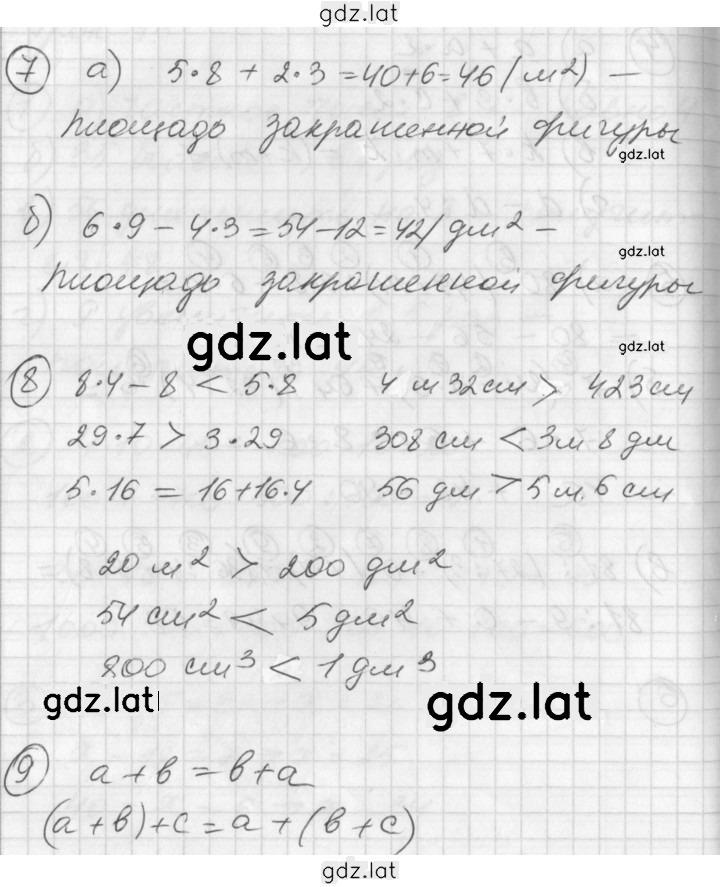 gdz.lat
7 а) 5·8 + 2·3 = 40+6 = 46 (м2) —
площадь закрашенной фигуры
gdz.lat
б) 6·9 − 4·3 = 54−12 = 42 (дм2 —
gdz.lat
площадь закрашенной фигуры
gdz.lat
gdz.lat
8 8·4 − 8 < 5·8 4 м 32 см > 423 см
29·7 > 3·29 308 см < 3 м 8 дм
5·16 = 16+16·4 56 дм > 5 м 6 см
20 м2 > 200 дм2
54 см2 < 5 дм2
800 см3 < 1 дм3
gdz.lat gdz.lat
9 a + в = в + a
(a + в) + c = a + (в + c)
gdz.lat